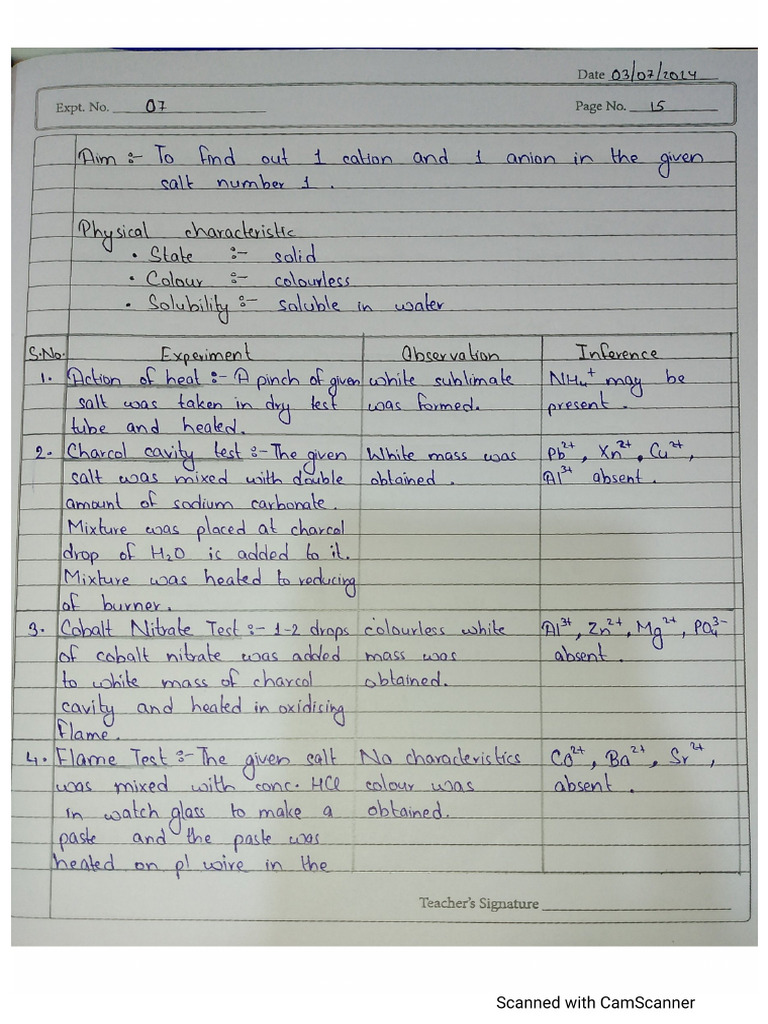 Date 03/07/2024
Expt. No. 07 Page No. 15
Aim :- To find out 1 cation and 1 anion in the given
salt number 1.
Physical characteristic
• State :- solid
• Colour :- colourless
• Solubility :- soluble in water
S.No. Experiment Observation Inference
1. Action of heat :- A pinch of given white sublimate NH4+ may be
salt was taken in dry test was formed. present.
tube and heated.
2. Charcol cavity test :- The given White mass was Pb2+, Xn2+, Cu2+,
salt was mixed with double obtained. Al3+ absent.
amount of sodium carbonate.
Mixture was placed at charcol
drop of H2O is added to it.
Mixture was heated to reducing
of burner.
3. Cobalt Nitrate Test :- 1-2 drops colourless white Al3+, Zn2+, Mg2+, PO43-
of cobalt nitrate was added mass was absent.
to white mass of charcol obtained.
cavity and heated in oxidising
flame.
4. Flame Test :- The given salt No characteristics Co2+, Ba2+, Sr2+,
was mixed with conc. HCl colour was absent.
in watch glass to make a obtained.
paste and the paste was
heated on pl wire in the
Teacher's Signature
Scanned with CamScanner